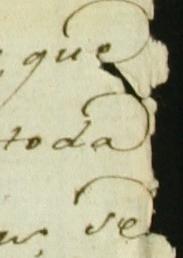 que
toda
se